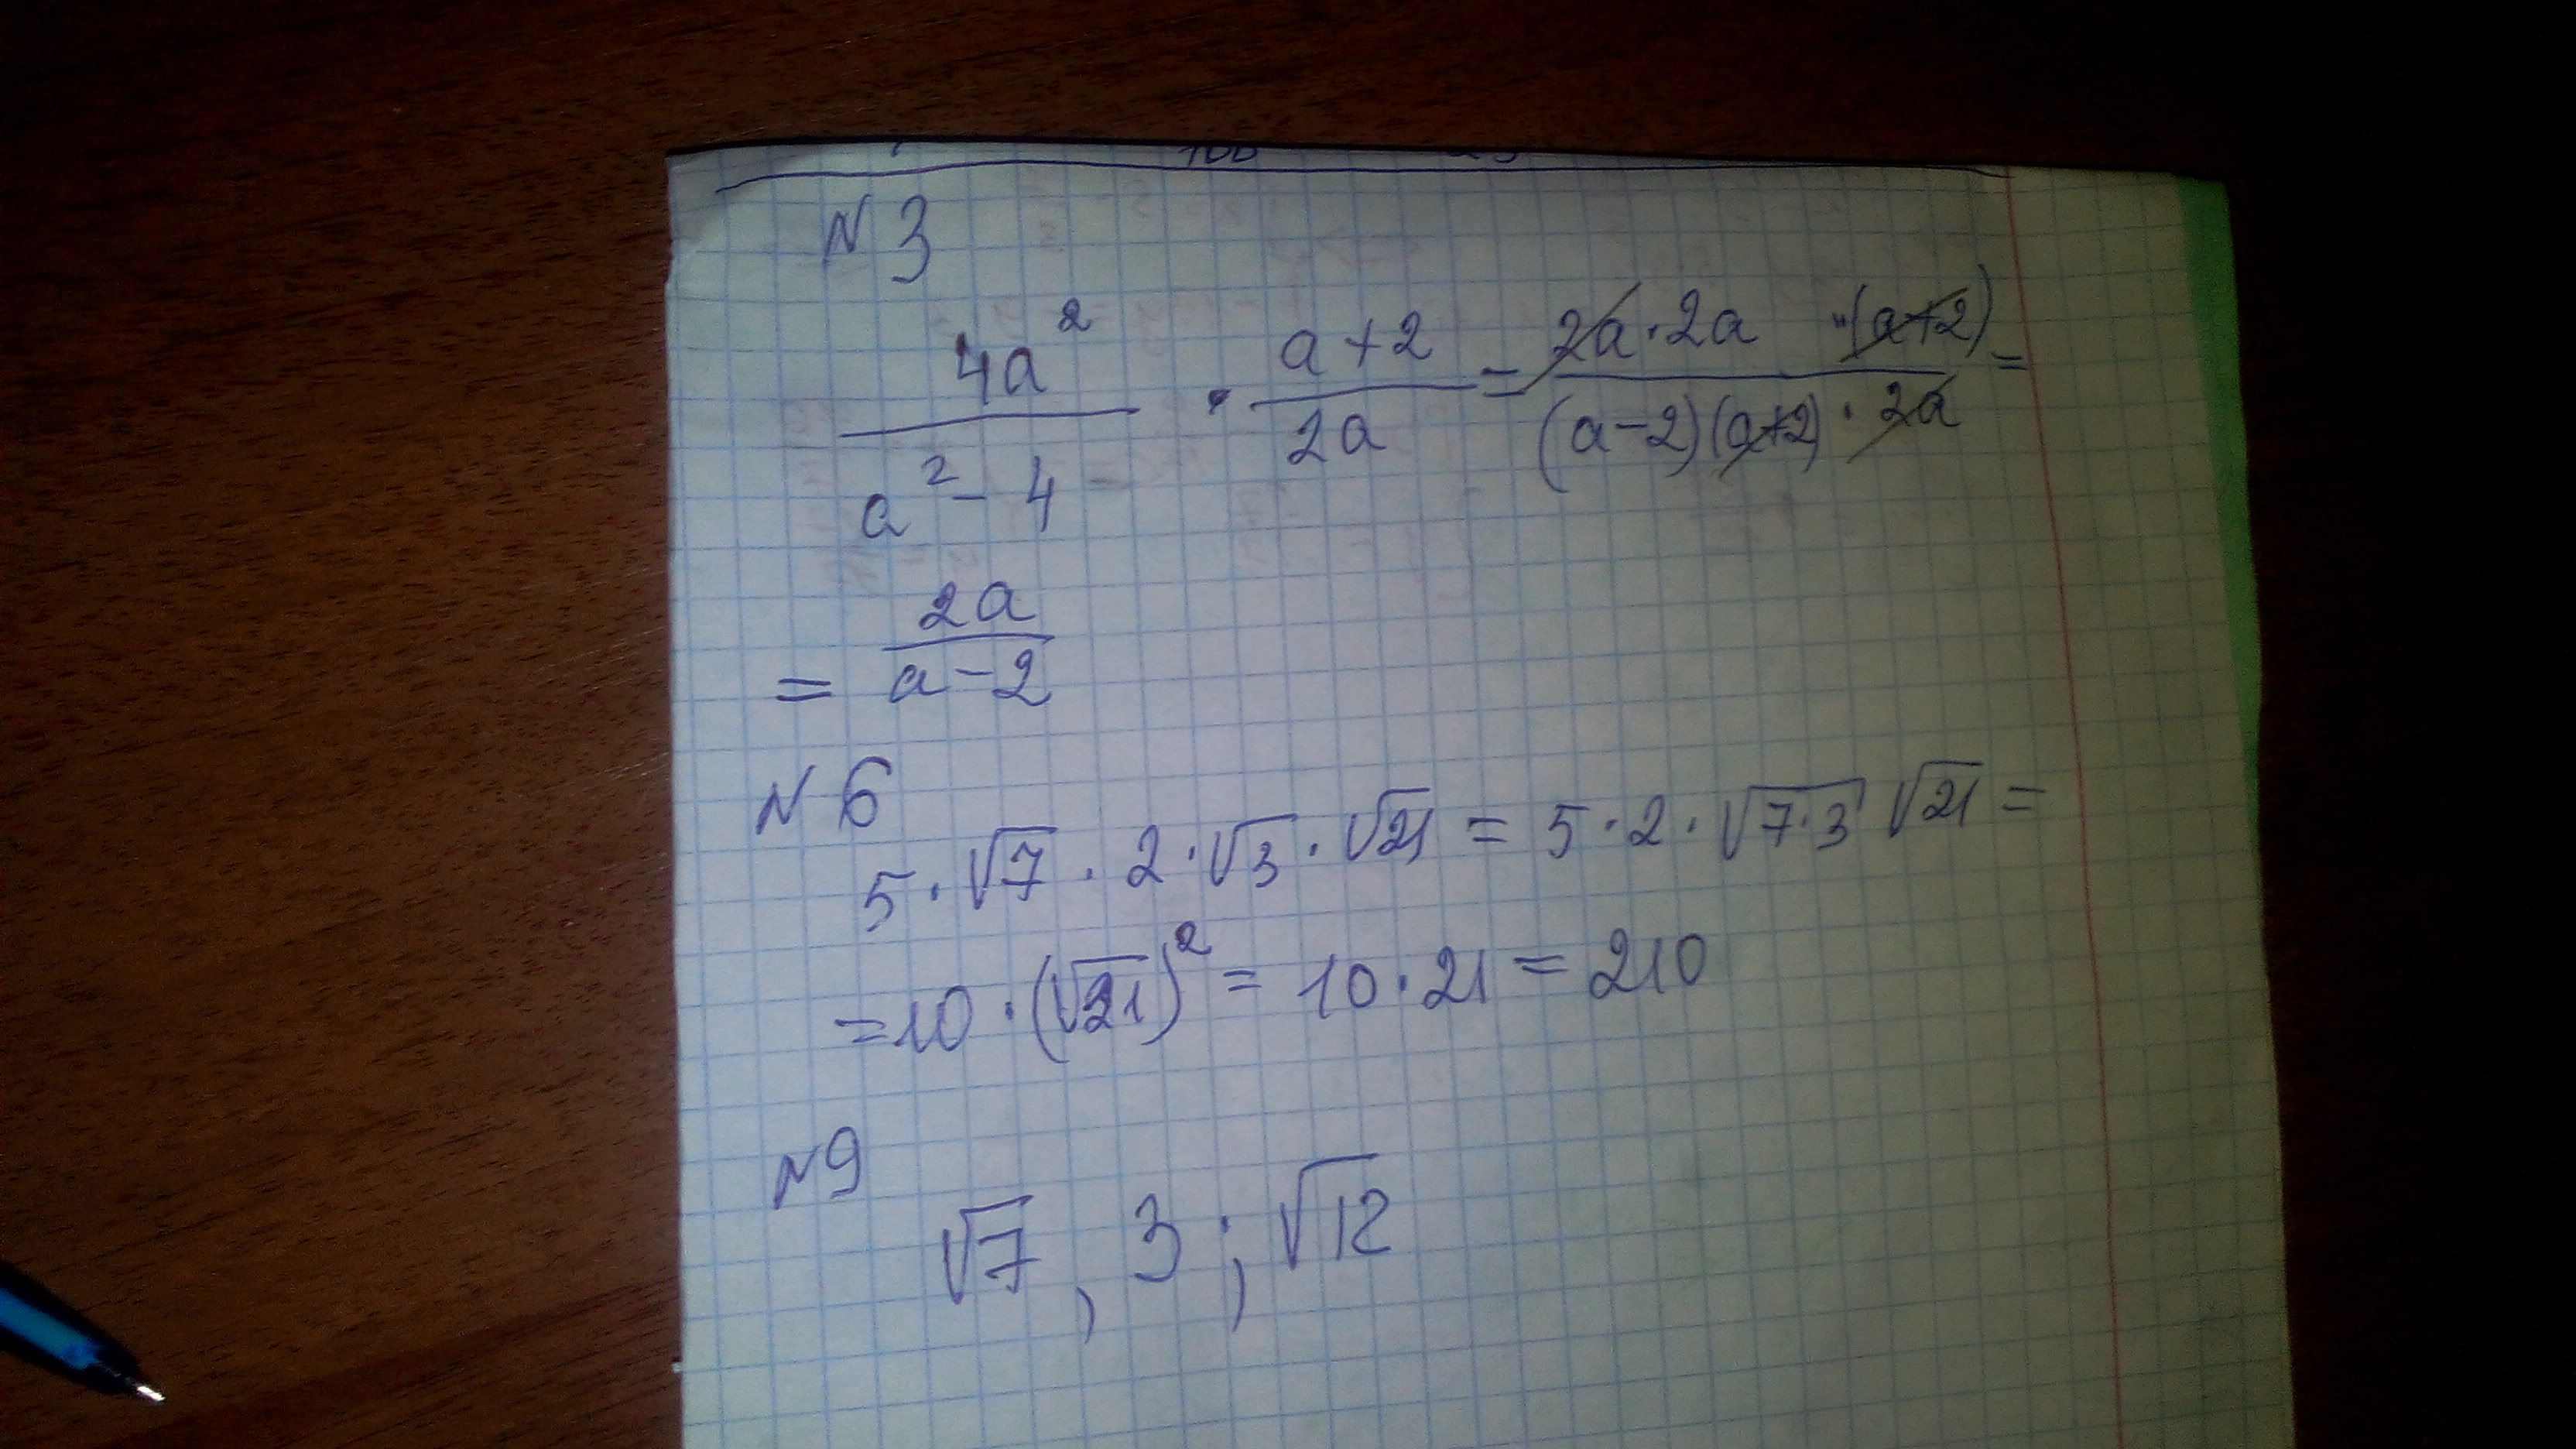 N 3
4a² / (a² - 4) · (a+2) / 2a = 2a·2a·(a+2) / (a-2)(a+2)·2a =
= 2a / (a-2)
N 6
5·√7 · 2·√3 · √21 = 5·2·√7·3 √21 =
=10·(√21)² = 10·21 = 210
N9
√7, 3; √12